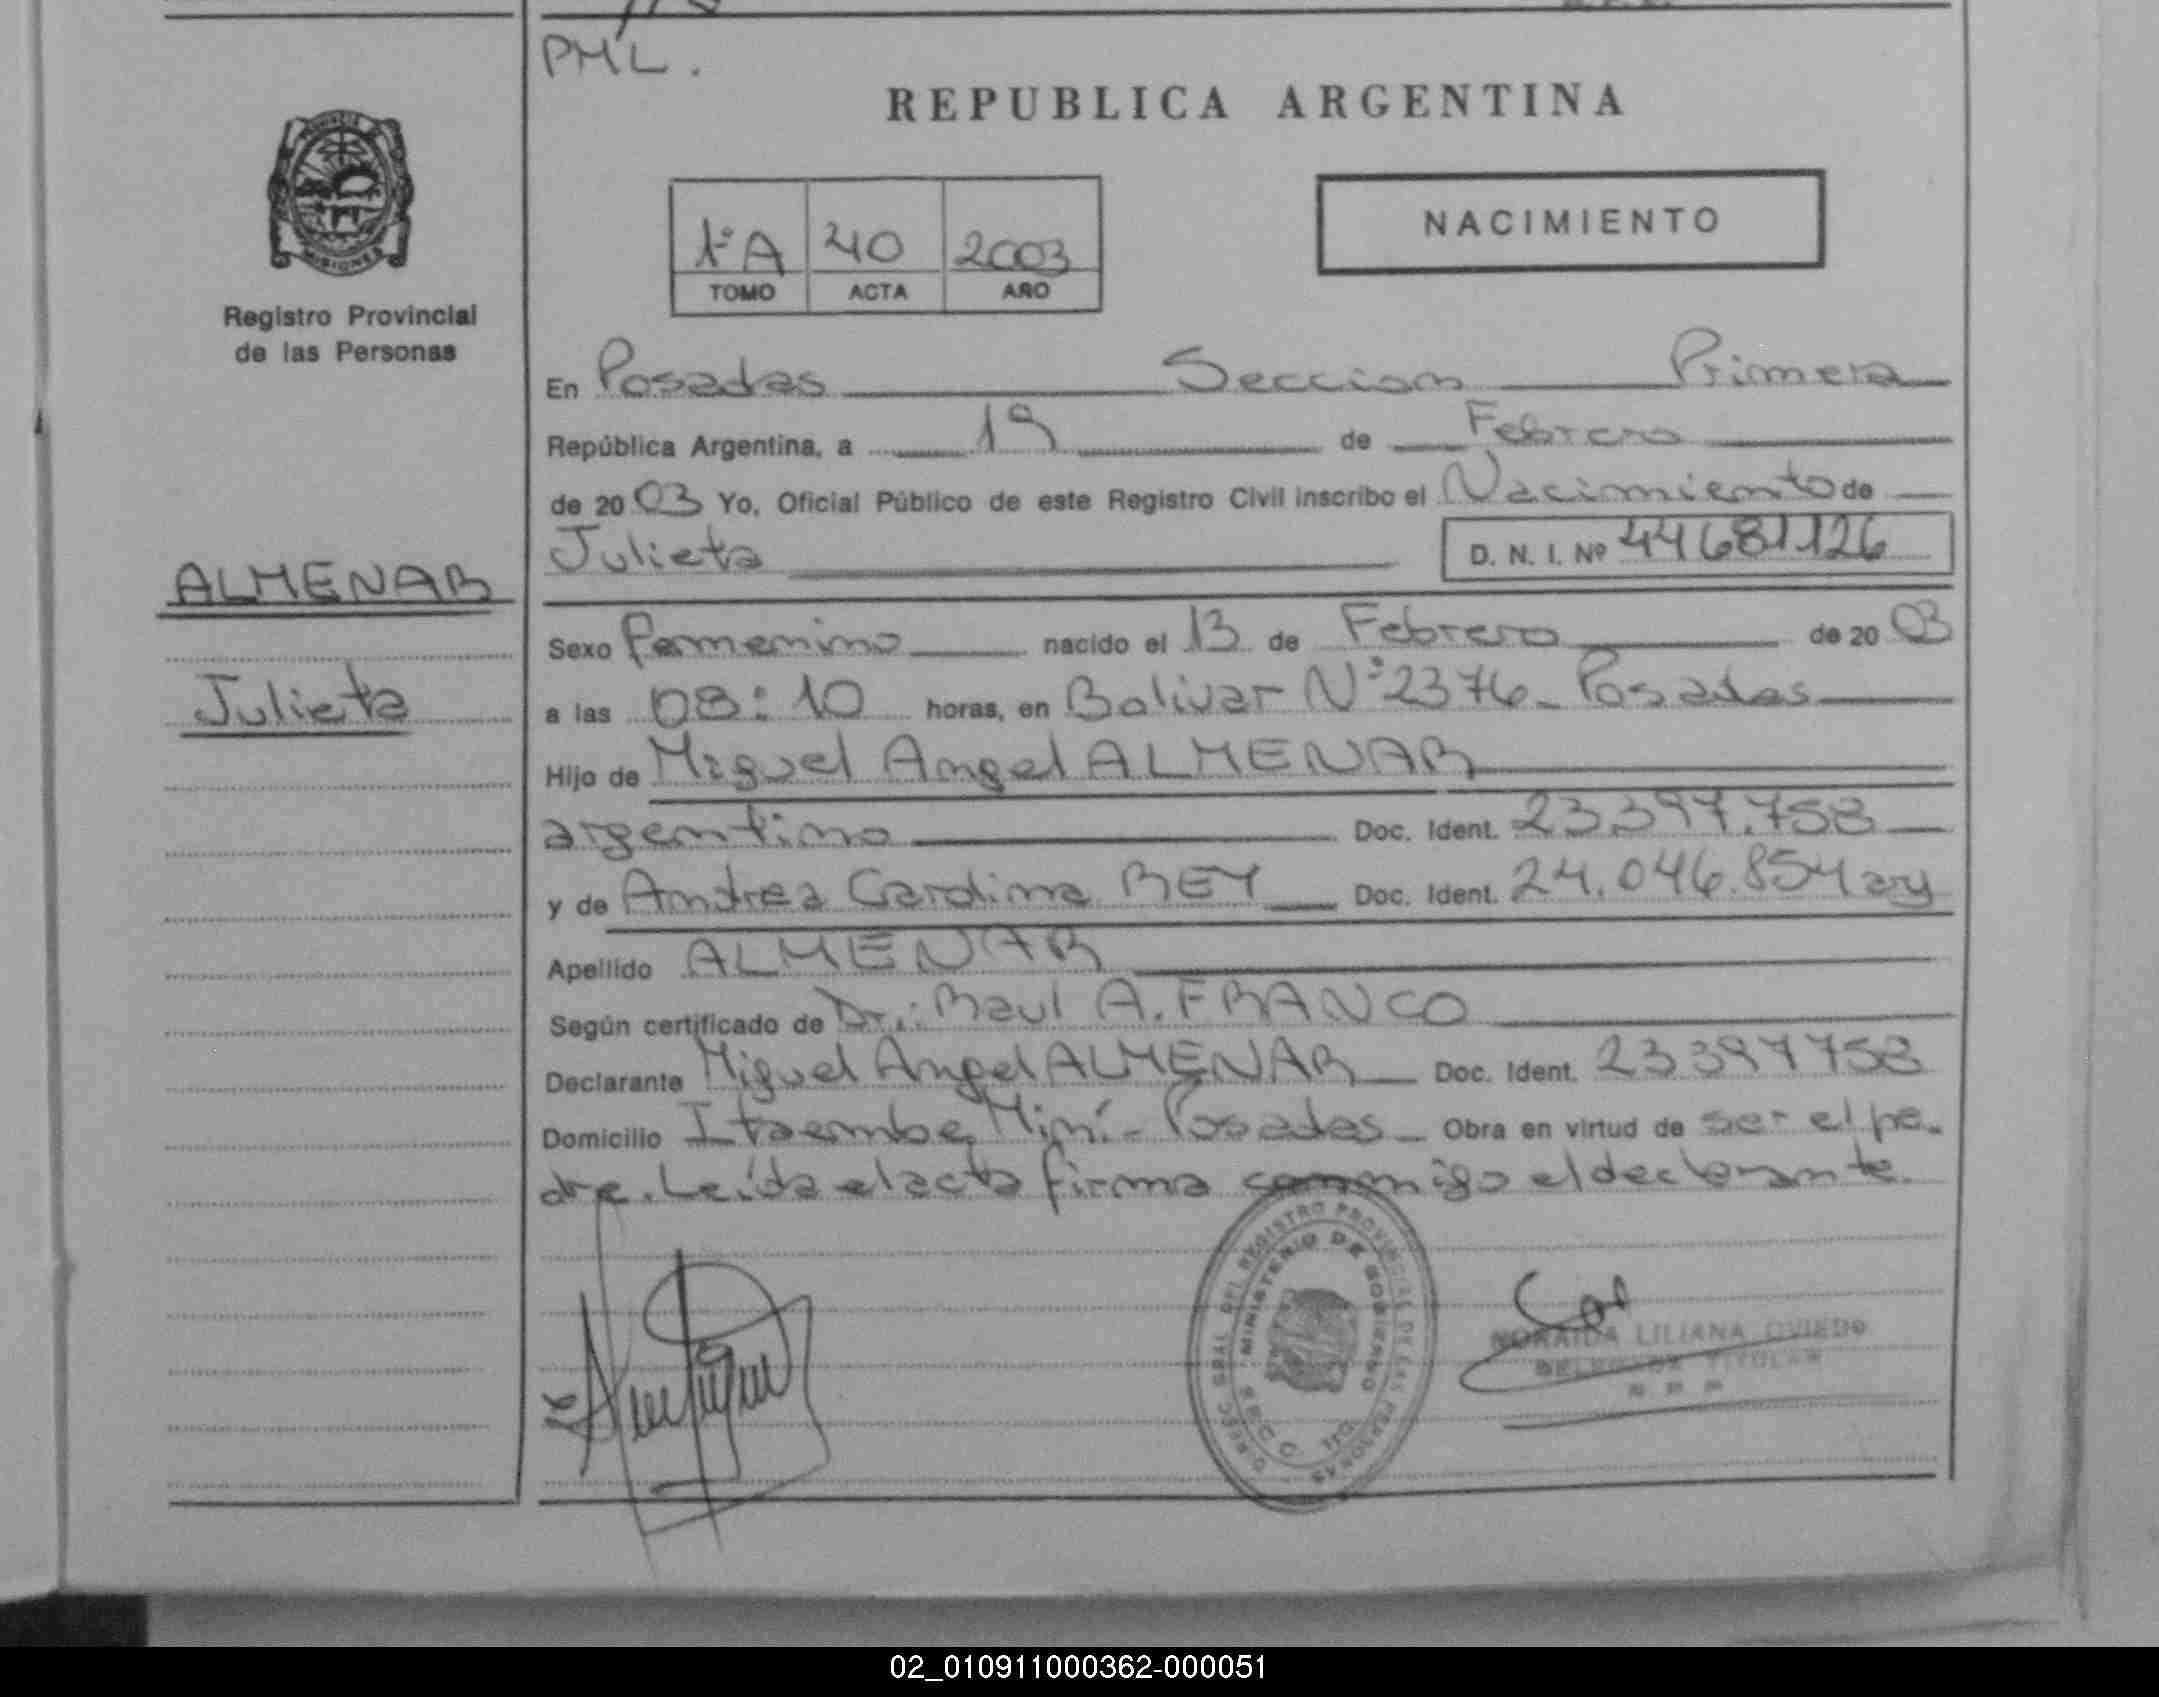 PML.
REPUBLICA ARGENTINA
PROVINCIA DE
MISIONES
Registro Provincial
de las Personas
1ºA 40 2003
TOMO ACTA AÑO
NACIMIENTO
En Posadas Seccion Primera
República Argentina, a 19 de Febrero
de 2003 Yo, Oficial Público de este Registro Civil inscribo el Nacimiento de
Julieta D. N. I. Nº 44681126
ALMENAR
Julieta
Sexo femenino nacido el 13 de Febrero de 2003
a las 08:10 horas, en Bolivar Nº 2376 - Posadas
Hijo de Miguel Angel ALMENAR
argentino Doc. Ident. 23.397.758
y de Andrea Carolina REY Doc. Ident. 24.046.854 arg
Apellido ALMENAR
Según certificado de Dr.: Raul A. FRANCO
Declarante Miguel Angel ALMENAR Doc. Ident. 23397758
Domicilio Itaembe Miní - Posadas - Obra en virtud de ser el pa-
dre. Leída el acta firma conmigo el declarante.
DIREC. GRAL. DEL REGISTRO PROVINCIAL DE LAS PERSONAS
MINISTERIO DE GOBIERNO
NORAIDA LILIANA OVIEDO
DELEGADA TITULAR
02_010911000362-000051